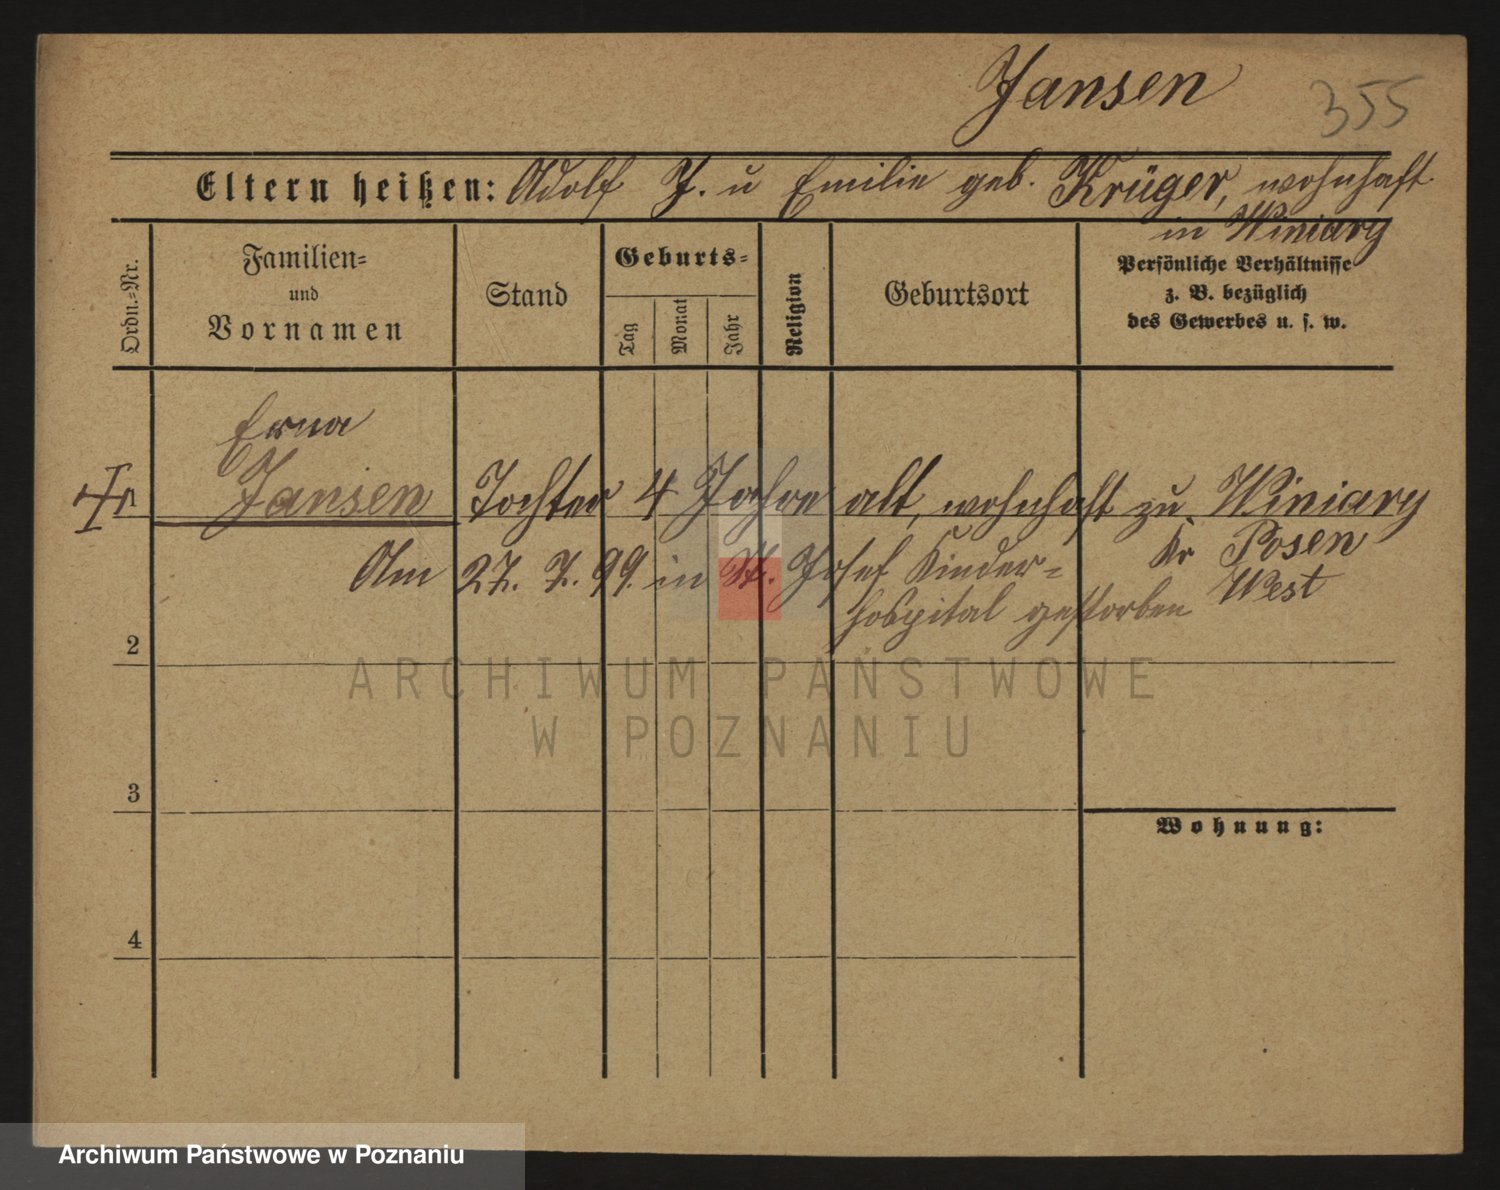 Jansen 355
Eltern heißen: Adolf J. u Emilie geb. Krüger, wohnhaft
in Winiary
Ordn.=Nr.
Familien=
und
Vornamen
Stand
Geburts=
Tag
Monat
Jahr
Religion
Geburtsort
Persönliche Verhältnisse
z. B. bezüglich
des Gewerbes u. s. w.
Erna
1 Jansen Tochter 4 Jahre alt, wohnhaft zu Winiary
Kr Posen
West
Am 27. 7. 99. in St. Josef Kinder=
hospital gestorben
2
ARCHIWUM PAŃSTWOWE
W POZNANIU
3
Wohnung:
4
Archiwum Państwowe w Poznaniu